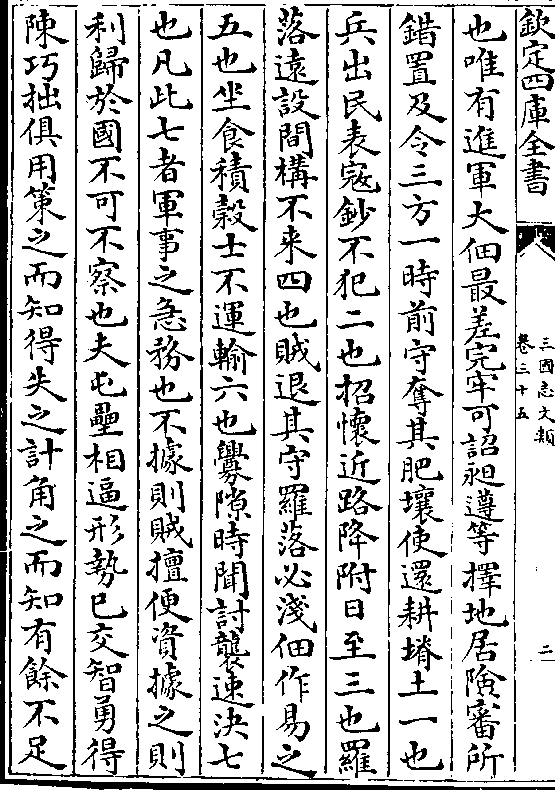 欽定四庫全書
三國志文類
卷三十五
二
也唯有進軍大佃最差完牢可詔昶遵等擇地居險審所
錯置及令三方一時前守奪其肥壤使還耕塉土一也
兵出民表寇鈔不犯二也招懷近路降附日至三也羅
落遠設間構不来四也賊退其守羅落必淺佃作易之
五也坐食積穀士不運輸六也釁隙時聞討襲速决七
也凡此七者軍事之急務也不據則賊擅便資據之則
利歸於國不可不察也夫屯壘相逼形勢已交智勇得
陳巧拙俱用策之而知得失之計角之而知有餘不足